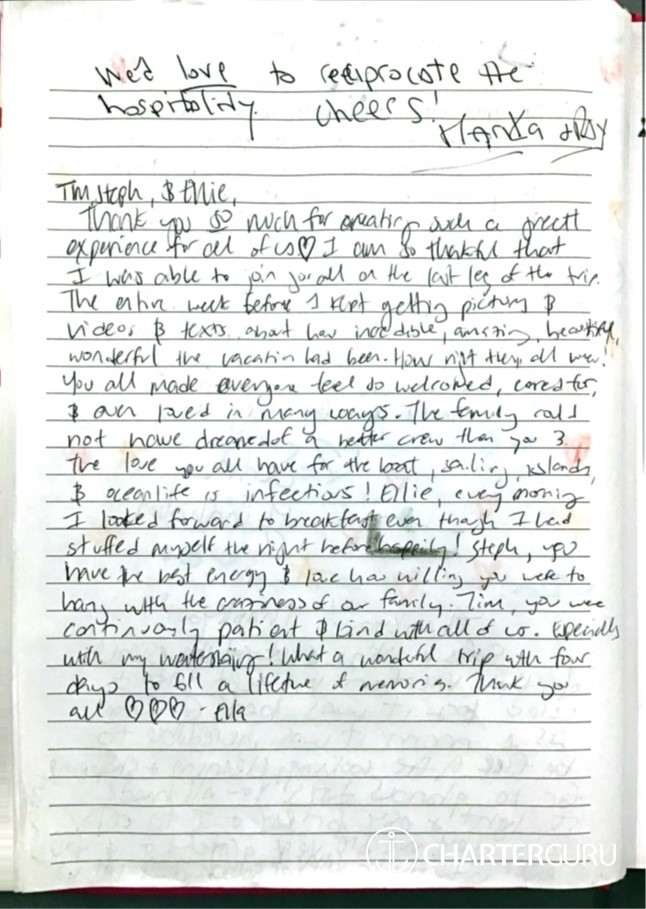 We'd love to reciprocate the
hospitality. Cheers!
Tim, Steph, & Ellie,
Thank you so much for creating such a great
experience for all of us♡ I am so thankful that
I was able to join you all on the last leg of the trip.
The entire week before I kept getting pictures &
videos & texts about how incredible, amazing, beautiful,
wonderful the vacation had been. How right they all were!
You all made everyone feel so welcomed, cared for,
& even loved in many ways. The family could
not have dreamed of a better crew than you 3.
The love you all have for the boat, sailing, islands,
& ocean life is infectious! Ellie, every morning
I looked forward to breakfast even though I had
stuffed myself the night before happily! Steph, you
have the best energy & love how willing you were to
hang with the craziness of our family. Tim, you were
continuously patient & kind with all of us. Especially
with my waterskiing! What a wonderful trip with four
days to fill a lifetime of memories. Thank you
all ♡♡♡ - Ella
CHARTERGURU